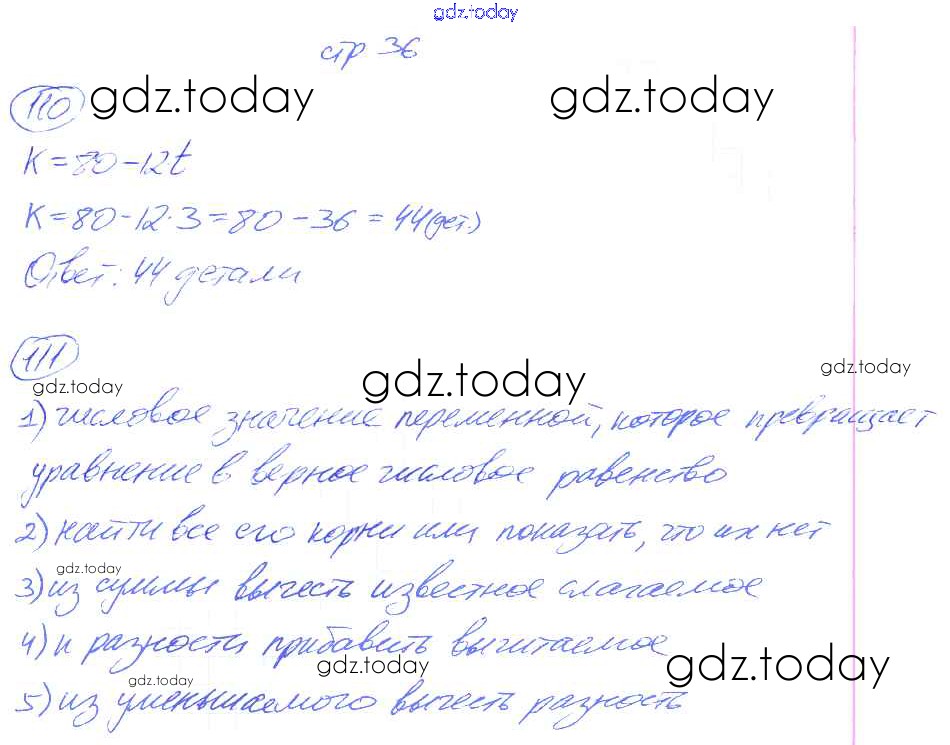 gdz.today
стр 36
110 gdz.today gdz.today
K=80-12t
K=80-12·3=80-36=44(дет.)
Ответ: 44 детали
111
gdz.today gdz.today gdz.today
1) числовое значение переменной, которое превращает
уравнение в верное числовое равенство
2) найти все его корни или показать, что их нет
gdz.today
3) из суммы вычесть известное слагаемое
4) к разности прибавить вычитаемое
gdz.today gdz.today gdz.today
5) из уменьшаемого вычесть разность